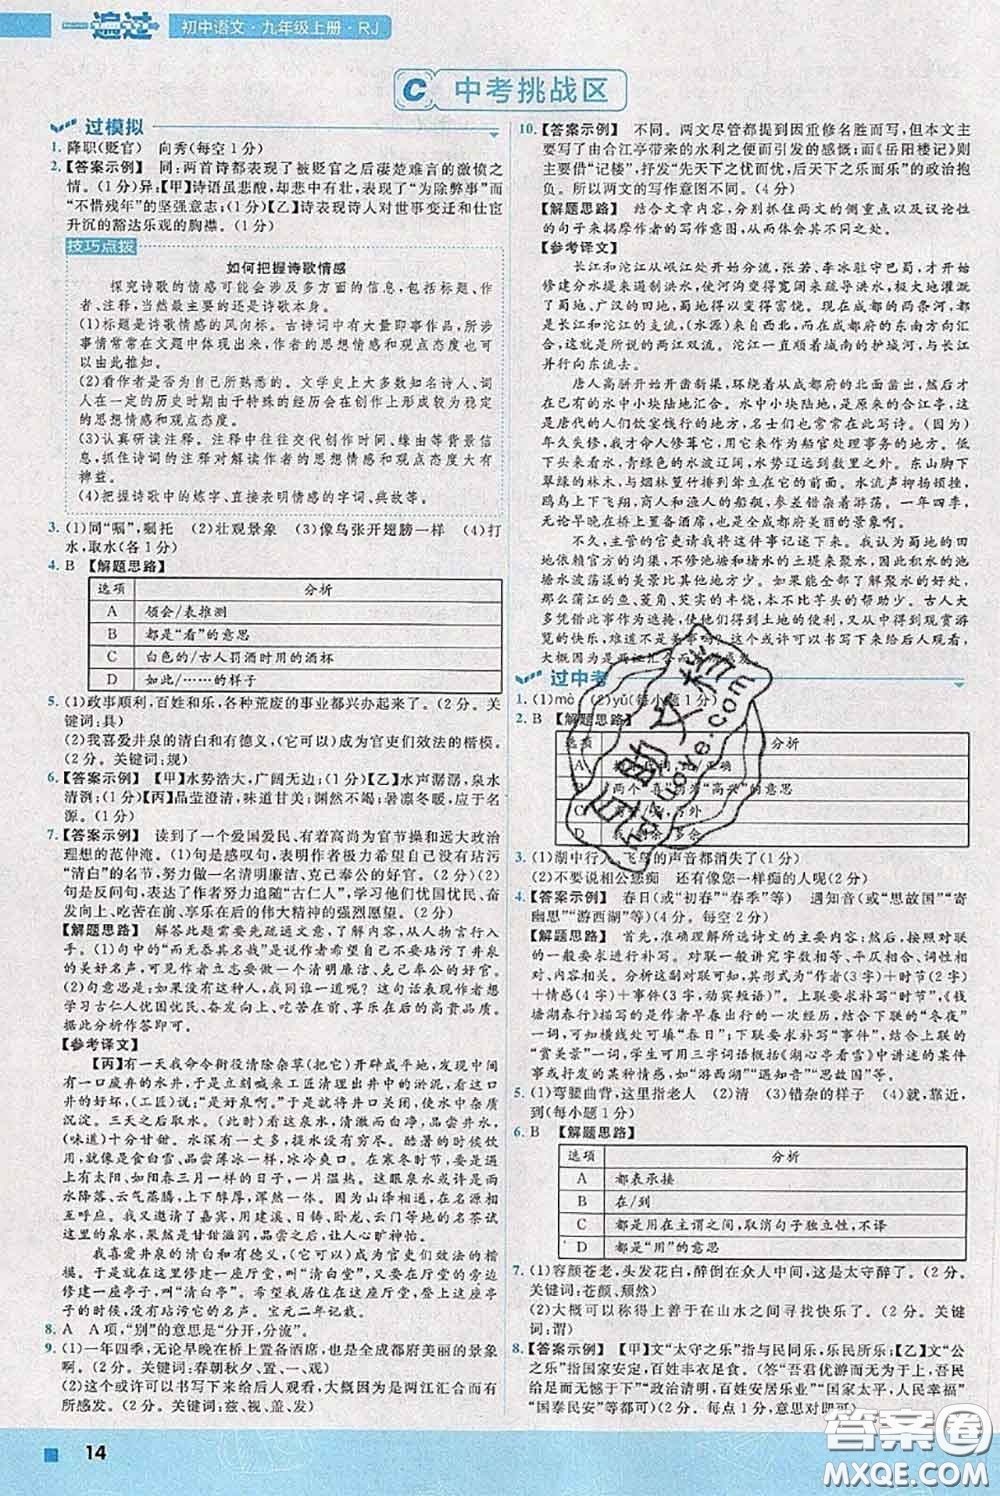 一遍过 初中语文·九年级上册·RJ
C 中考挑战区
过模拟
1. 降职(贬官)　向秀(每空1分)
2.【答案示例】　同:两首诗都表现了被贬官之后凄楚难言的激愤之
情。(1分)异:【甲】诗语虽悲酸,却悲中有壮,表现了“为除弊事”而
“不惜残年”的坚强意志;(1分)【乙】诗表现诗人对世事变迁和仕宦
升沉的豁达乐观的胸襟。(1分)
技巧点拨
如何把握诗歌情感
探究诗歌的情感可能会涉及多方面的信息,包括标题、作
者、注释,当然最主要的还是诗歌本身。
(1)标题是诗歌情感的风向标。古诗词中有大量即事作品,所涉
事情常常在文题中体现出来,作者的思想情感和观点态度也可
以由此推知。
(2)看作者是否为自己所熟悉的。文学史上大多数知名诗人、词
人在一定的历史时期由于特殊的经历会在创作上形成较为统一
的思想情感和观点态度。
(3)认真研读注释。注释中往往交代创作时间、缘由等背景信
息,抓住诗词的注释对解读作者的思想情感和观点态度大有
裨益。
(4)把握诗歌中的炼字、直接表明情感的字词、典故等。
3. (1)同“嘱”,嘱托　(2)壮观景象　(3)像鸟张开翅膀一样　(4)打
水,取水(各1分)
4. B 【解题思路】
选项　分析
A　领会/表推测
B　都是“看”的意思
C　白色的/古人罚酒时用的酒杯
D　如此/……的样子
5. (1)政事顺利,百姓和乐,各种荒废的事业都兴办起来了。(2分。
关键词:具)
(2)我喜爱井泉的清白和有德义,(它可以)成为官吏们效法的楷模。
(2分。关键词:规)
6.【答案示例】　【甲】水势浩大,广阔无边;【乙】水声潺潺,泉水
清洌;【丙】晶莹澄清,味道甘美;渊然不竭;暑凛冬暖,应于
名源。(2分)
7.【答案示例】　读到了一个爱国爱民、有着高尚为官节操和远大政治
理想的范仲淹。(1)句是感叹句,表明作者极力希望自己没有玷污
“清白”的名节,努力做一名清明廉洁、克己奉公的好官。(2分)(2)
句是反问句,表达了作者努力追随“古仁人”,学习他们忧国忧民,奋
发向上,忧患在前、享乐在后的伟大精神的强烈愿望。(2分)
【解题思路】　解答此题需要先疏通文意,了解内容,从人物言行入
手。(1)句中的“而无忝其名哉”是说作者希望自己不要玷污了井泉
的美好名声,可见他要努力做一个清明廉洁、克己奉公的好官。
(2)句意思是:除了这样的人,我同谁一道呢?这句话表明作者想
学习古仁人忧国忧民、奋发向上、忧患在前、享乐在后的高贵品质。
据此分析作答即可。
【参考译文】
【丙】有一天我命令衙役清除杂草(把它)开辟成平地,发现其中
有一口废弃的水井,于是立刻喊来工匠清理出井中的泥,询问这口井
的好坏,(工匠)说:“是好泉啊。”我就将井口关闭,使水中的杂质
沉淀。三天之后打开。(此时)看这泉水,清澈而白净,品尝井水,
(味道)十分甘甜。水深有一丈多,提水没有穷尽。酷暑的时候饮
用,品尝那味道如薄冰一样,冰冷爽口。在严冬时候提水,品尝那味道
上有太阳,如阳春三月一样的日子,一片温热。这眼泉水或与雨水
降落、云气蒸腾相感应,或者与江海相通,也可以与有名的泉水相
呼应啊。我又邀请了嘉宾,用建溪、日铸、卧龙、云门等地的名茶试
这里的泉水,果然是甘甜滋润,品尝之后,让人心旷神怡。
我喜爱井泉的清白和有德义,(它可以)成为官吏们效法的楷
模。因此在这里修建一座厅堂,叫“清白堂”。又在厅堂的旁边
修建一座亭子,叫“清白亭”。希望我居住在这样的厅堂,登上这样
的亭子,没有玷污它的名声。宝元二年记载。
8. A　A项,“别”的意思是“分开,分流”。
9. (1)一年四季,无论早晚在桥上置备酒席,也是全成都府美丽的景
象啊。(2分。关键词:春朝秋夕、置、一、观)
(2)或许可以书写下来给后人观看,大概因为是两江汇合而有
所感发。(2分。关键词:兹、视、盖、发)
10.【答案示例】　不同。两文尽管都提到因重修名胜而写,但本文主
要写的是由合江亭带来的水利之便而引发的感慨;而《岳阳楼记》
是借“记楼”,抒发“先天下之忧而忧,后天下之乐而乐”的政治抱
负。所以两文的写作意图不同。(4分)
【解题思路】　结合文章内容,分别抓住两文的侧重点以及议论性
的句子来揭摩作者的写作意图,从而体会其不同之处。
【参考译文】
长江和沱江从岷江处开始分流,张若、李冰驻守巴蜀,才开始
修建分水堤来遏制洪水,使河沟变得宽阔来疏导水流,极大地灌溉
了蜀地、广汉的田地,蜀地得以变得富饶。现在成都的两条河,
是长江和沱江的支流,(水源)来自西北,而在成都府的东南方向汇
合,这就是所说的两江双流。沱江一直顺着城南的护城河,与长江
并行向东流去。
唐人高骈开始开凿新渠,环绕着从成都府的北面凿出,然后
才在水中小块陆地汇合。水中小块陆地的水上有原来的合江亭,
这是唐代的人们饮宴饯行的地方,名士们也常常在此写诗。(因为)
年久失修,我才命人修葺它,使它作为船官处理事务的地方。低
下头看水中,青绿色的水波辽阔,水势延伸到数里之外。东山脚下
翠绿的水林,与大竹和松柏冠盖相连,看上去郁郁葱葱。水流声抑扬倾折,
鸥鸟上下飞翔,商人和渔人的船艇,参差错杂着游荡。一年四季,
无论早晚在桥上置备酒席,也是全成都府美丽的景象啊。
不久,主管的官吏请我将这件事记述下来。我认为蜀地的
田地依赖官府的沟渠,不修池塘和水的土堤来聚水,所以蜀地
水波荡漾的美景比其他地方少。如果能全部了解聚水的好处,
那么蒲江的鱼、菱角、芡实的丰饶,也不比芋头的帮助少。古人大
多凭借此事作为政绩,使他们得到土地的便利,又从中得到观赏游
览的快乐,难道不是考虑周到吗?这个或许可以书写下来给后人观看,大
概是因为两江汇合而有所感发。
过中考
1. (1)mò　(2)yǔ(每小题1分)
2. B 【解题思路】
选项　分析
A　正确
B　两个“喜”的意思“高兴”的意思
C　另外
D　多余
3. (1)湖中行人、飞鸟的声音都消失了(1分)
(2)不要说相公您痴　还有像您一样痴的人呢(2分)
4.【答案示例】　春日(或“初春”“春季”等)　遇知音(或“思故国”“寄
幽思”“游西湖”等)(4分。每空2分)
【解题思路】　首先,准确理解所选诗文的主要内容;然后,按照对联
的一般要求进行补写。对联一般讲究字数相等、平仄相合、词性相
对、内容相关。分析这副对联可知,其形式为“作者(3字)+时节(2字)
+情感(4字)+事件(3字,动宾短语)”。上联要求补写“时节”,《钱
塘湖春行》描写的是作者早春出行的一次经历,结合下联的“冬夜”
一词,可知横线处可填“春日”;下联要求补写“事件”,结合上联的
“赏美景”一词,学生可用三字词语概括《湖心亭看雪》中讲述的某件
事或抒发的某种情感,如“游西湖”“遇知音”“思故国”等。
5. (1)弯腰曲背,这里指老人　(2)清　(3)错杂的样子　(4)就,靠近,
到(每小题1分)
6. B 【解题思路】
选项　分析
A　都表承接
B　在/到
C　都是用在主谓之间,取消句子独立性,不译
D　都是“用”的意思
7. (1)容颜苍老,头发花白,醉倒在众人中间,这是太守醉了。(2分。
关键词:苍颜、颓然)
(2)大概可以称得上善于在山水之间寻找快乐了。(2分。关键
词:谓)
8.【答案示例】　【甲】文“太守之乐”指与民同乐,乐民所乐;【乙】文“公
之乐”指国家安定,百姓丰衣足食。(答“吾君优游而无为于上,吾民
给足而无憾于下”“政治清明,百姓安居乐业”“国家太平,人民幸福”
“国泰民安”等均可)(2分。每点1分,意思对即可)
14
答案圈
MXQE.COM